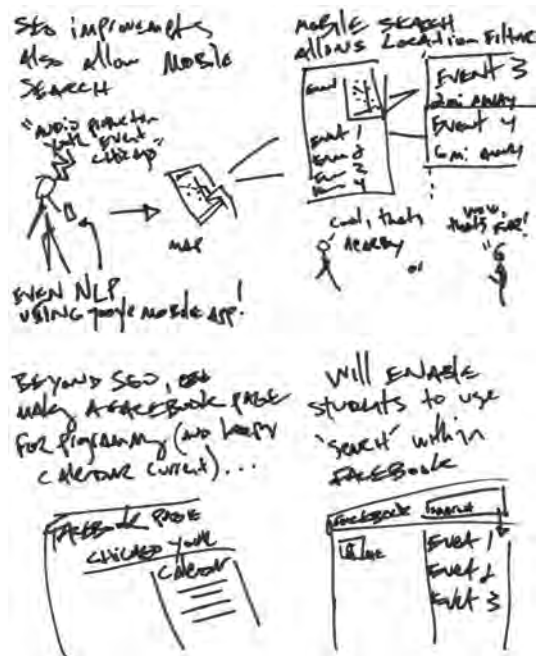 SEO improvements
Also allow Mobile
SEARCH
"AUDIO production
youth EVENT
CHICAGO"
MAP
EVEN NLP
USING google mobile App!
Mobile SEARCH
allows Location Filter
Event
EVENT 3
2mi AWAY
EVENT 4
6mi AWAY
Event 1
Event 2
Event 3
Event 4
cool, thats
NEARBY
or
wow,
thats FAR!
BEYOND SEO,
making A FACEBOOK PAGE
For programming (and keeping
calendar current)...
FACEBOOK PAGE
CHICAGO youth
Calendar
Will ENABLE
students to use
"search" within
FACEBOOK
FACEBOOK
Event 1
Event 2
Event 3